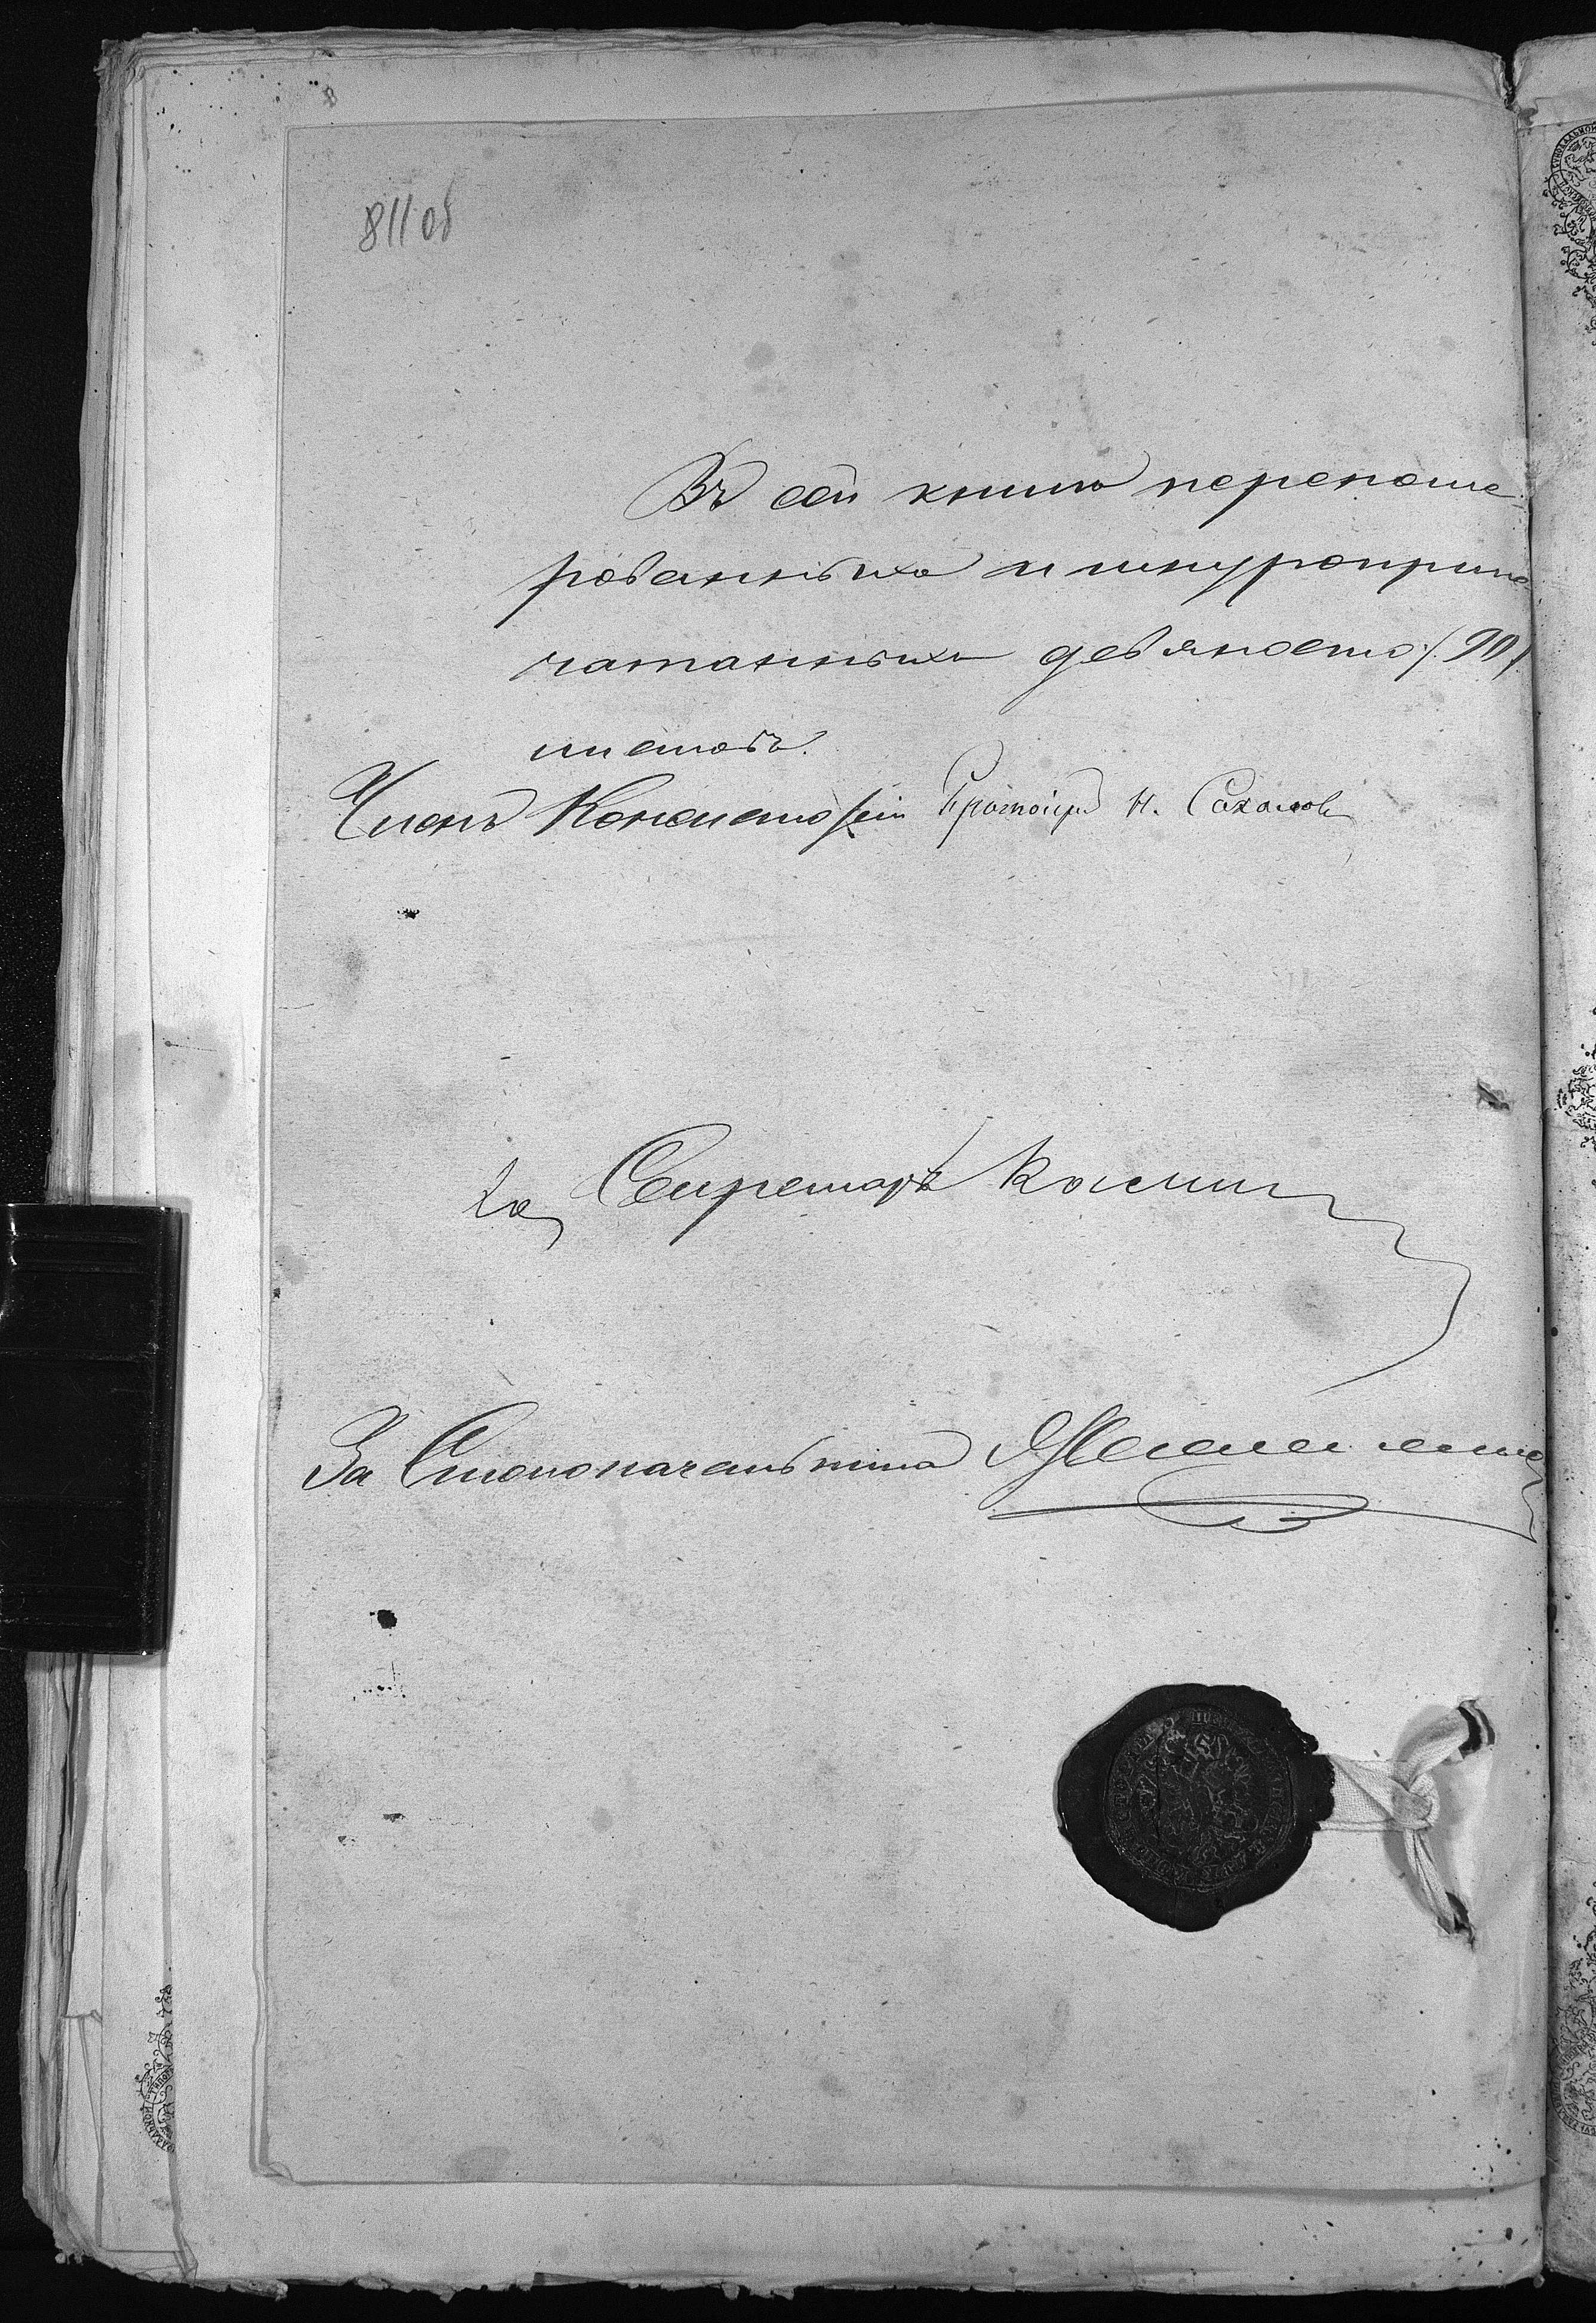 81 об
Въ сей книгѣ перенуме
рованныхъ и шнуроприпе
чатанныхъ девяносто /90/
листовъ.
Членъ Консисторіи Протоіерей Н. Соколовъ
За Секретаря
За Столоначальника